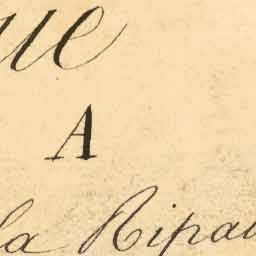 ue
A
la Ripa